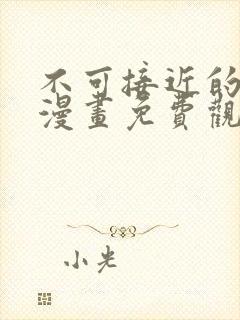 不可接近的
漫畫免費觀
小光